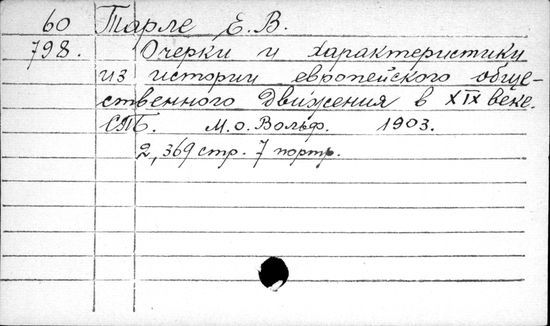 60 Тарле Е. В.
798. Очерки и характеристики
из истории европейского обще-
ственного движения в XIX веке.
СПБ. М. О. Вольф. 1903.
2, 369 стр. 7 портр.